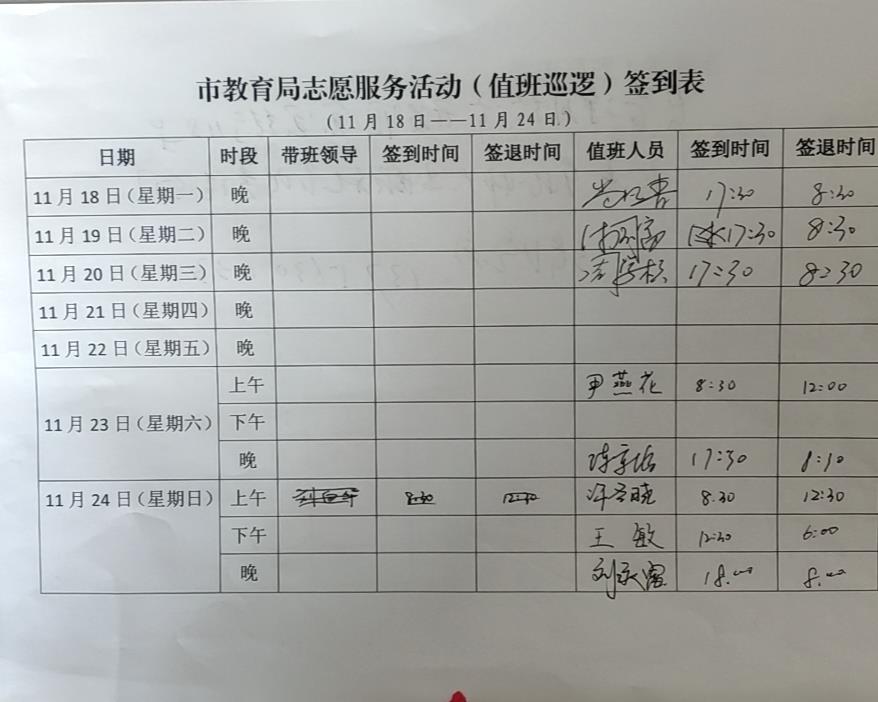 市教育局志愿服务活动（值班巡逻）签到表
（11月18日——11月24日）
日期 时段 带班领导 签到时间 签退时间 值班人员 签到时间 签退时间
11月18日（星期一） 晚 17:30 8:30
11月19日（星期二） 晚 17:30 8:30
11月20日（星期三） 晚 17:30 8:30
11月21日（星期四） 晚
11月22日（星期五） 晚
11月23日（星期六） 上午 尹燕花 8:30 12:00
下午
晚 17:30
11月24日（星期日） 上午 8:30 12:30 8.30 12:30
下午 王敏 12:30 6:00
晚 18.00 8.00